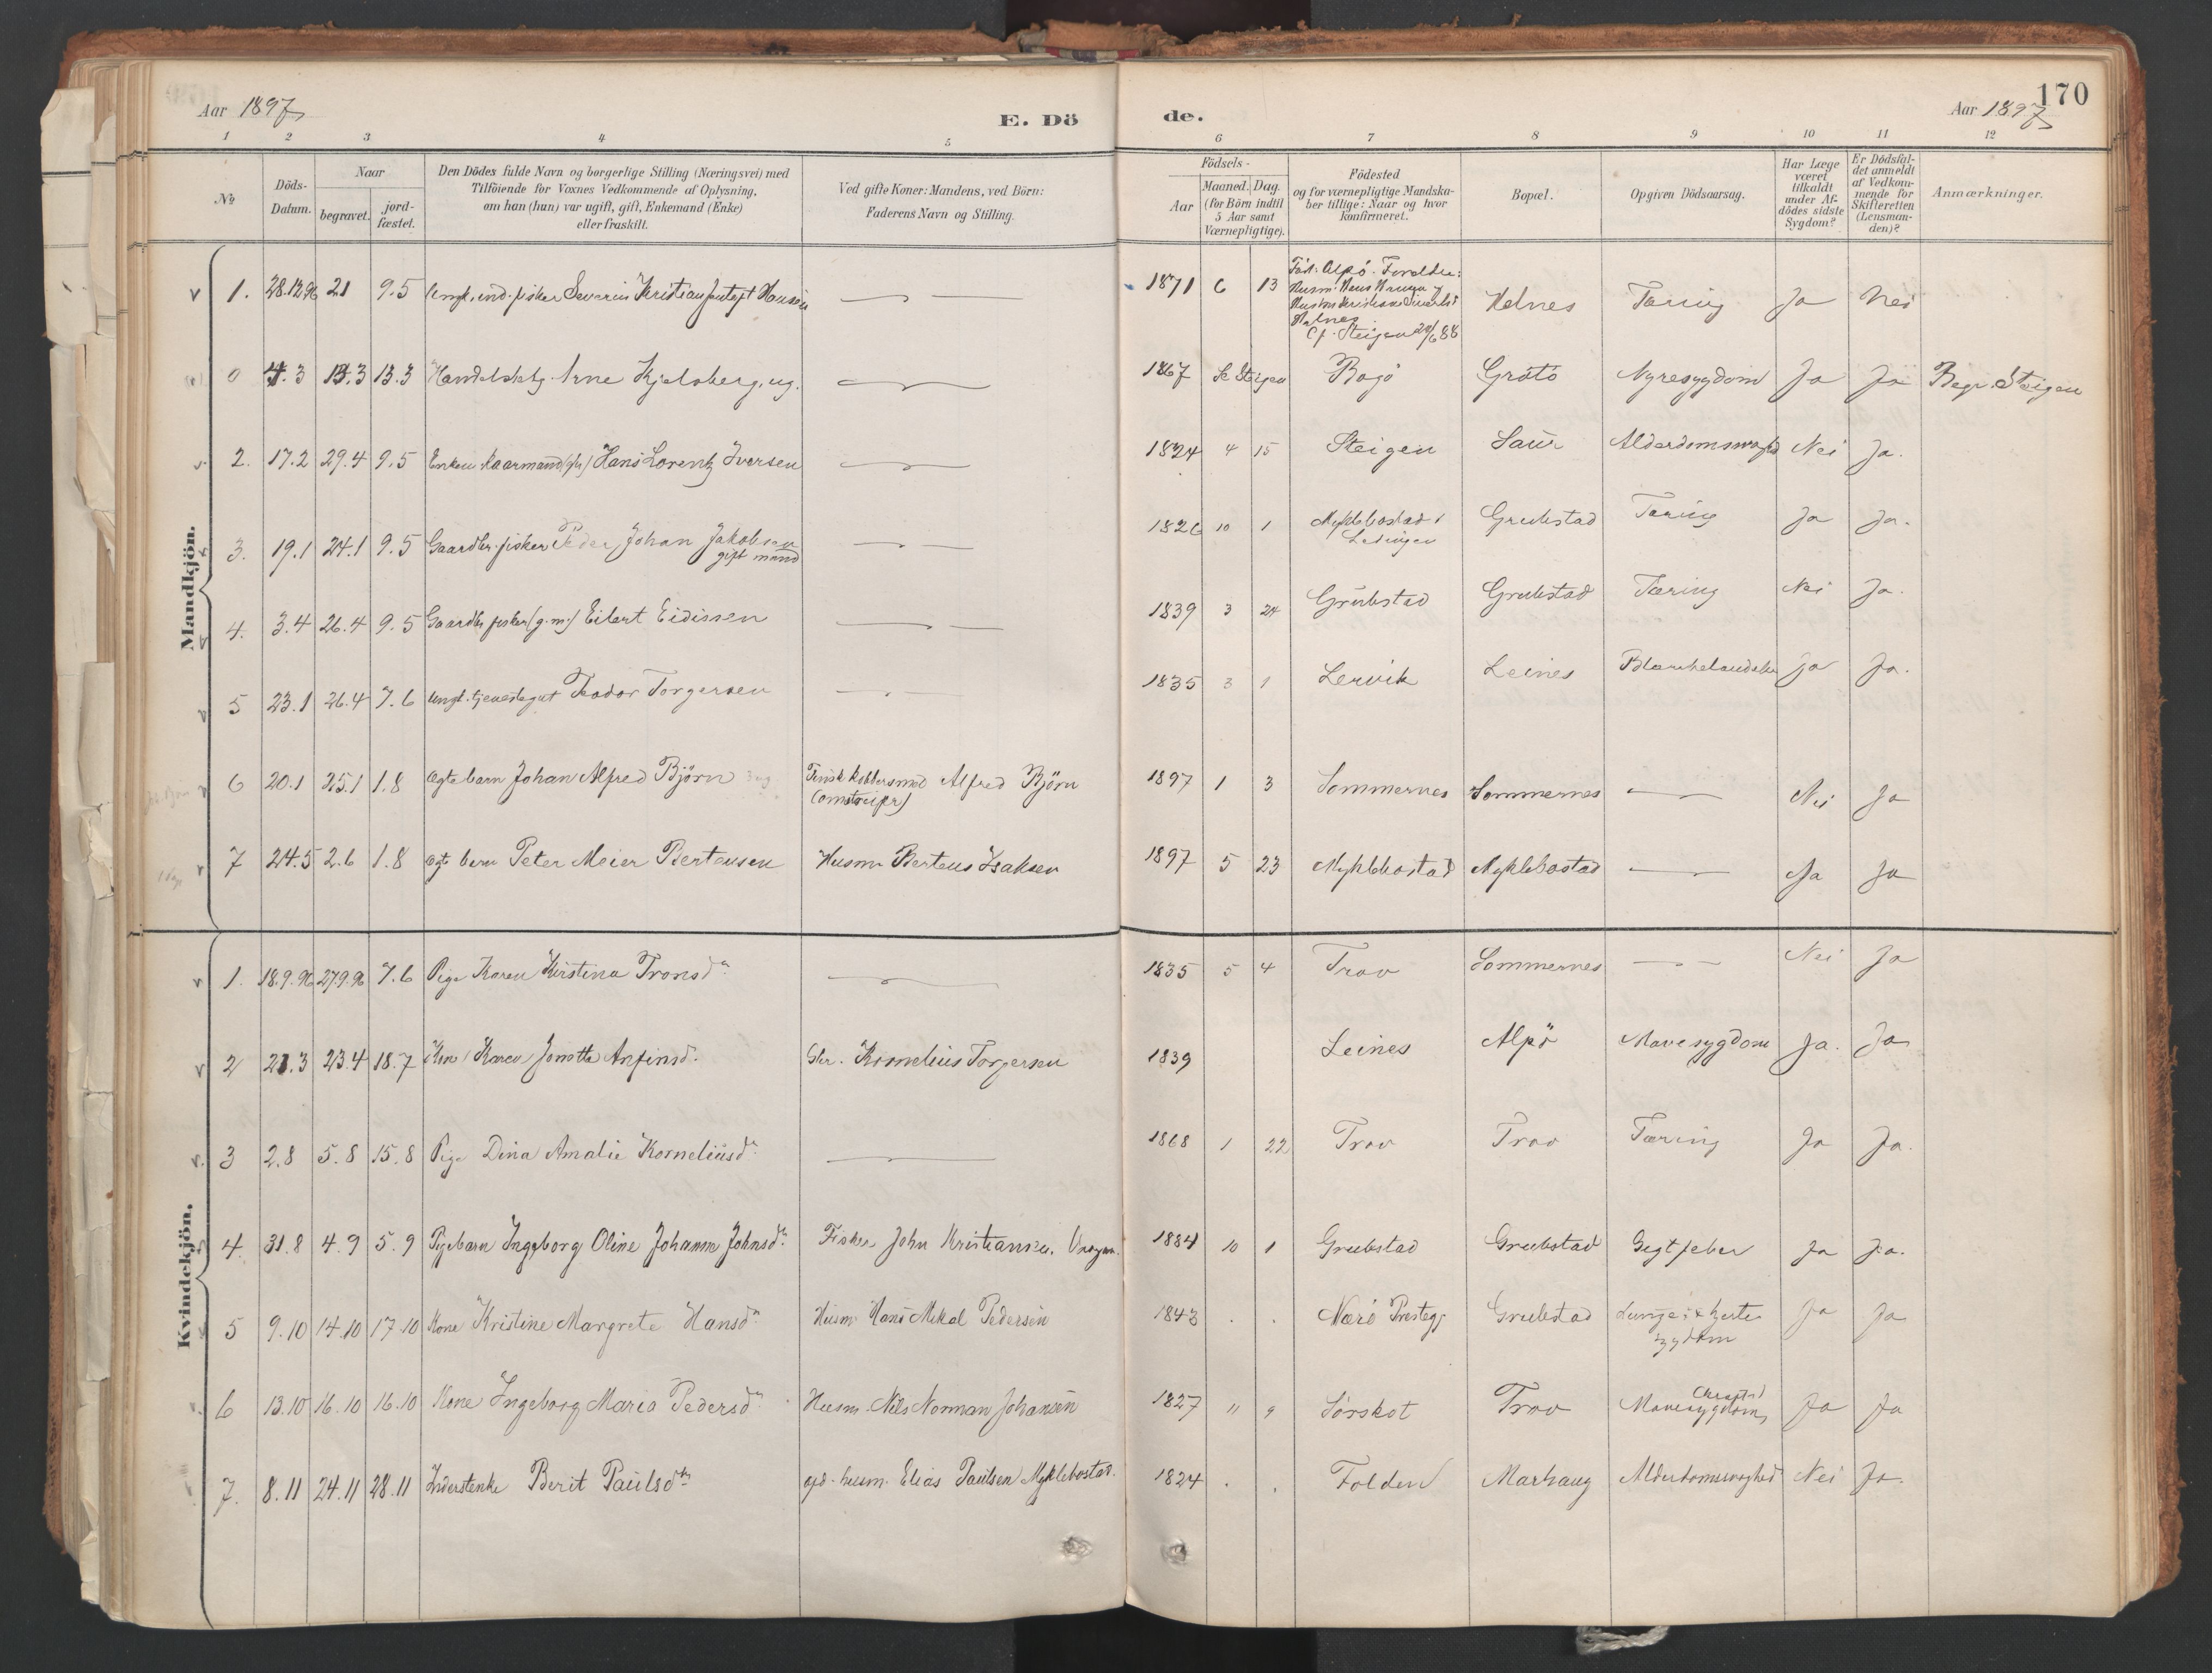 Aar 1897
E. Dö
de.
Aar 1897
170
1 2 3 4 5 6 7 8 9 10 11 12
No
Döds-
Datum.
Naar
begravet.
jord-
fæstet.
Den Dödes fulde Navn og borgerlige Stilling (Næringsvei) med
Tilföiende for Voxnes Vedkommende af Oplysning,
om han (hun) var ugift, gift, Enkemand (Enke)
eller fraskilt.
Ved gifte Koner: Mandens, ved Börn:
Faderens Navn og Stilling.
Födsels-
Aar
Maaned. Dag.
(for Börn indtil
5 Aar samt
Værnepligtige).
Födested
og for værnepligtige Mandska-
ber tillige: Naar og hvor
konfirmeret.
Bopæl.
Opgiven Dödsaarsag.
Har Læge
været
tilkaldt
under Af-
dödes sidste
Sygdom?
Er Dödsfal-
det anmeldt
af Vedkom-
mende for
Skifteretten
(Lensman-
den)?
Anmærkninger.
Mandkjön.
1. 28.12.96 21 9.5 Ungk. ind. fisker Severin Kristian Hansen 1871 6 13 Helnes Tæring Ja Nei
Cf. Steigen
0 4.3 13.3 13.3 Arne Kjelsberg, ug. 1867 Se Steigen Bogö Grötö Nyresygdom Ja Ja Begr. Steigen
2. 17.2 29.4 9.5 Hans Lorentz Iversen 1824 4 15 Steigen Laur Nei Ja.
3. 19.1 24.1 9.5 Gaardbr. fisker Peder Johan Jakobsen 1826 10 1 Myklebostad i Grubstad Tæring Ja Ja.
gift mand
4. 3.4 26.4 9.5 Gaardbr. fisker (g.m.) Eilert Eidissen 1839 3 24 Grubstad Grubstad Tæring Nei Ja.
5 23.1 26.4 7.6 Ungk. tjenestegut Teodor Torgersen 1835 3 1 Lervik Leines Ja Ja.
6 20.1 25.1 1.8 Ægtebarn Johan Alfred Björn Finsk kobbersmed Alfred Björn 1897 1 3 Sommernes Sommernes Nei Ja
7 24.5 2.6 1.8 Ægt barn Peter Meier Bertensen Husm. Berteus Isaksen 1897 5 23 Myklebostad Myklebostad Ja Ja
Kvindekjön.
1. 18.9.96 27.9.96 7.6 Pige Karen Kirstina Tronsdr 1835 5 4 Trov Sommernes Nei Ja
2 21.3 23.4 18.7 Karen Jonette Anfinsd. Gbr. Kornelius Torgersen 1839 Leines Alpö Mavesygdom Ja. Ja
3 2.8 5.8 15.8 Pige Dina Amalie Korneliusdr 1868 1 22 Trov Trov Tæring Ja Ja.
4. 31.8 4.9 5.9 Pigebarn Ingeborg Oline Johanna Johnsdr Fisker John Kristiansen, 1884 10 1 Grubstad Grubstad Gigtfeber Ja Ja.
5 9.10 14.10 17.10 Kone Kristine Margrete Hansdr Husm. Hans Mikal Pedersen 1843 . . Nærö Prestegj Grubstad Lunge & Hjerte Ja Ja
sygdom
6 13.10 16.10 16.10 Kone Ingeborg Maria Pedersdr Husm. Nils Norman Johansen 1827 11 9 Sörskot Trov Mavesygdom Ja Ja
7. 8.11 24.11 28.11 Inderstenke Berit Paulsdr husm. Elias Paulsen Myklebostad. 1824 . . Folden Marhaug Alderdomssvaghed Nei Ja.